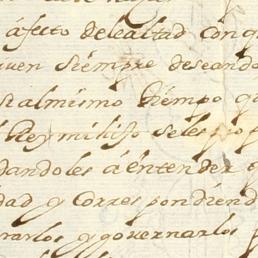 afecto de lealtad con q
uen siempre deseando
al mismo tiempo q
Rey mi hijo se les pro
dandoles á entender
dad y correspondiend
rarlos y governarlos